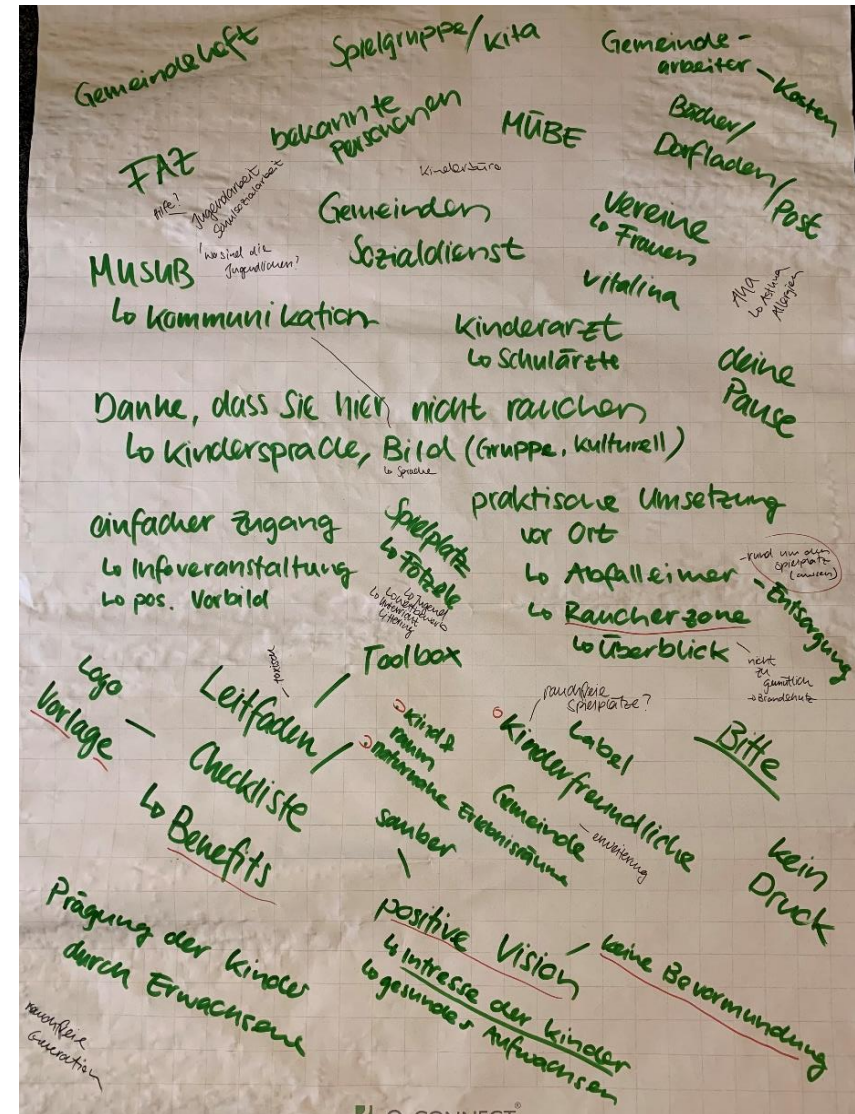 Gemeindehaft
Spielgruppe/Kita
Gemeinde-
arbeiter - Kosten
bekannte
Personen
MÜBE
Bäcker/
Dorfladen/Post
FAZ
Hilfe?
Jugendarbeit
Schulsozialarbeit
Kinderbüro
Gemeinden
Sozialdienst
Vereine
↳ Frauen
MUSUB
! wo sind die
Jugendlichen?
Vitalina
Aha
↳ Asthma
Allergien
↳ Kommunikation
Kinderarzt
↳ Schulärzte
deine
Pause
Danke, dass Sie hier nicht rauchen
↳ Kindersprache, Bild (Gruppe, kulturell)
↳ Sprache
einfacher Zugang
↳ Infoveranstaltung
↳ pos. Vorbild
Spielplatz
↳ Fötzele
↳ Jugend
↳ Wettbewerb
↳ Unterricht
Littering
praktische Umsetzung
vor Ort
↳ Abfalleimer - Entsorgung
- rund um den
Spielplatz
(aussen)
↳ Raucherzone
↳ Überblick
nicht
zu
gemütlich
→ Brandschutz
Logo
Vorlage
Leitfaden / Toolbox
Checkliste
↳ Benefits
Kind &
raum
naturnahe Erlebnisräume
sauber
rauchfreie
Spielplätze?
Label
Kinderfreundliche
Gemeinde
- erweiterung
Bitte
kein
Druck
Prägung der Kinder
durch Erwachsene
rauchfreie
Generation
positive Vision / keine Bevormundung
↳ Intresse der Kinder
↳ gesundes Aufwachsen
CONNECT®